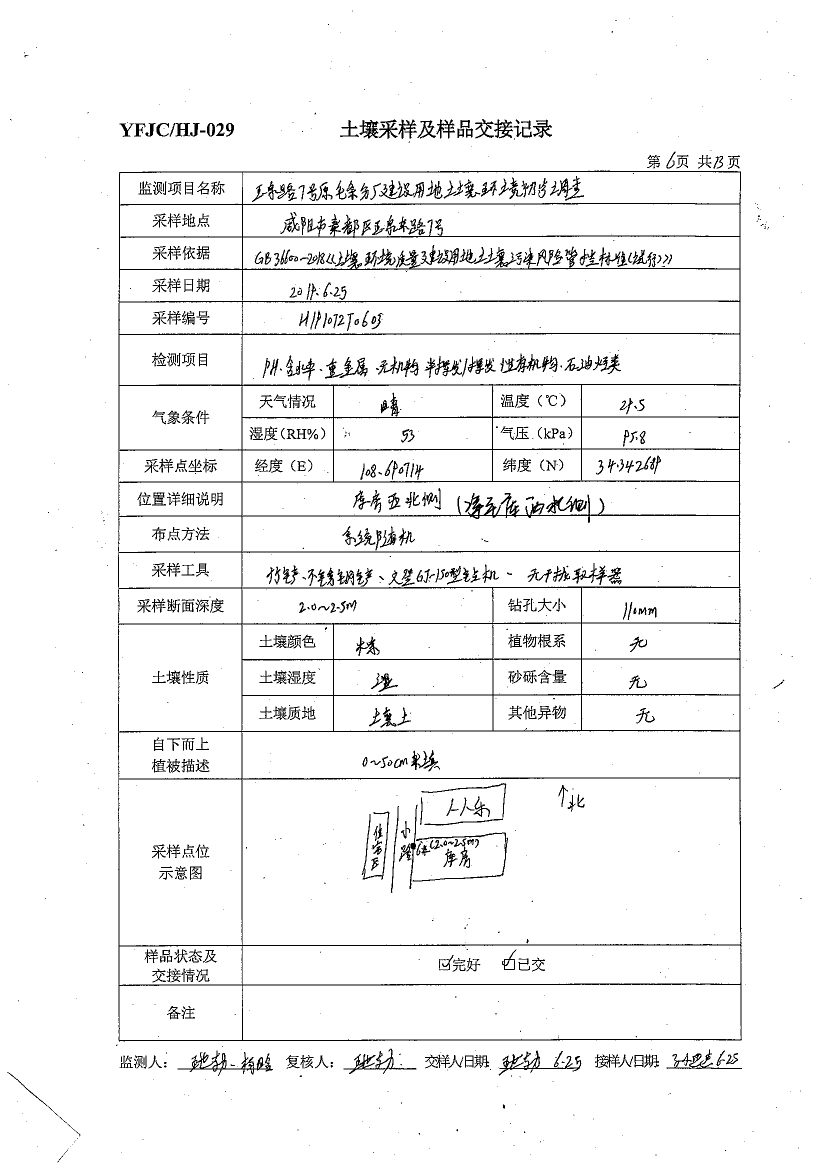 YFJC/HJ-029 土壤采样及样品交接记录
第6页 共13页
监测项目名称 路7号原毛条分厂建设用地土壤环境初步调查
采样地点 咸阳市秦都区 东路7号
采样依据 GB36600-2018《土壤环境质量建设用地土壤污染风险管控标准(试行)》
采样日期 2019.6.25
采样编号
检测项目 PH、含水率、重金属、无机物 半挥发/挥发性有机物、石油烃类
气象条件 天气情况 晴 温度(℃) 29.5
湿度(RH%) 53 气压(kPa) 95.8
采样点坐标 经度(E) 108.690714 纬度(N) 34.342689
位置详细说明 库房西北侧
布点方法 系统随机
采样工具 竹铲、不锈钢铲、 GJ-150型 机、无干扰取样器
采样断面深度 2.0~2.5m 钻孔大小 110mm
土壤性质 土壤颜色 植物根系 无
土壤湿度 湿 砂砾含量 无
土壤质地 土壤土 其他异物 无
自下而上
植被描述 0~50cm
采样点位
示意图
人人乐
↑北
住宅区
小路
6# (2.0~2.5m)
库房
样品状态及
交接情况 ☑完好 ☑已交
备注
监测人: 复核人: 交样人/日期: 6.25 接样人/日期: 6.25